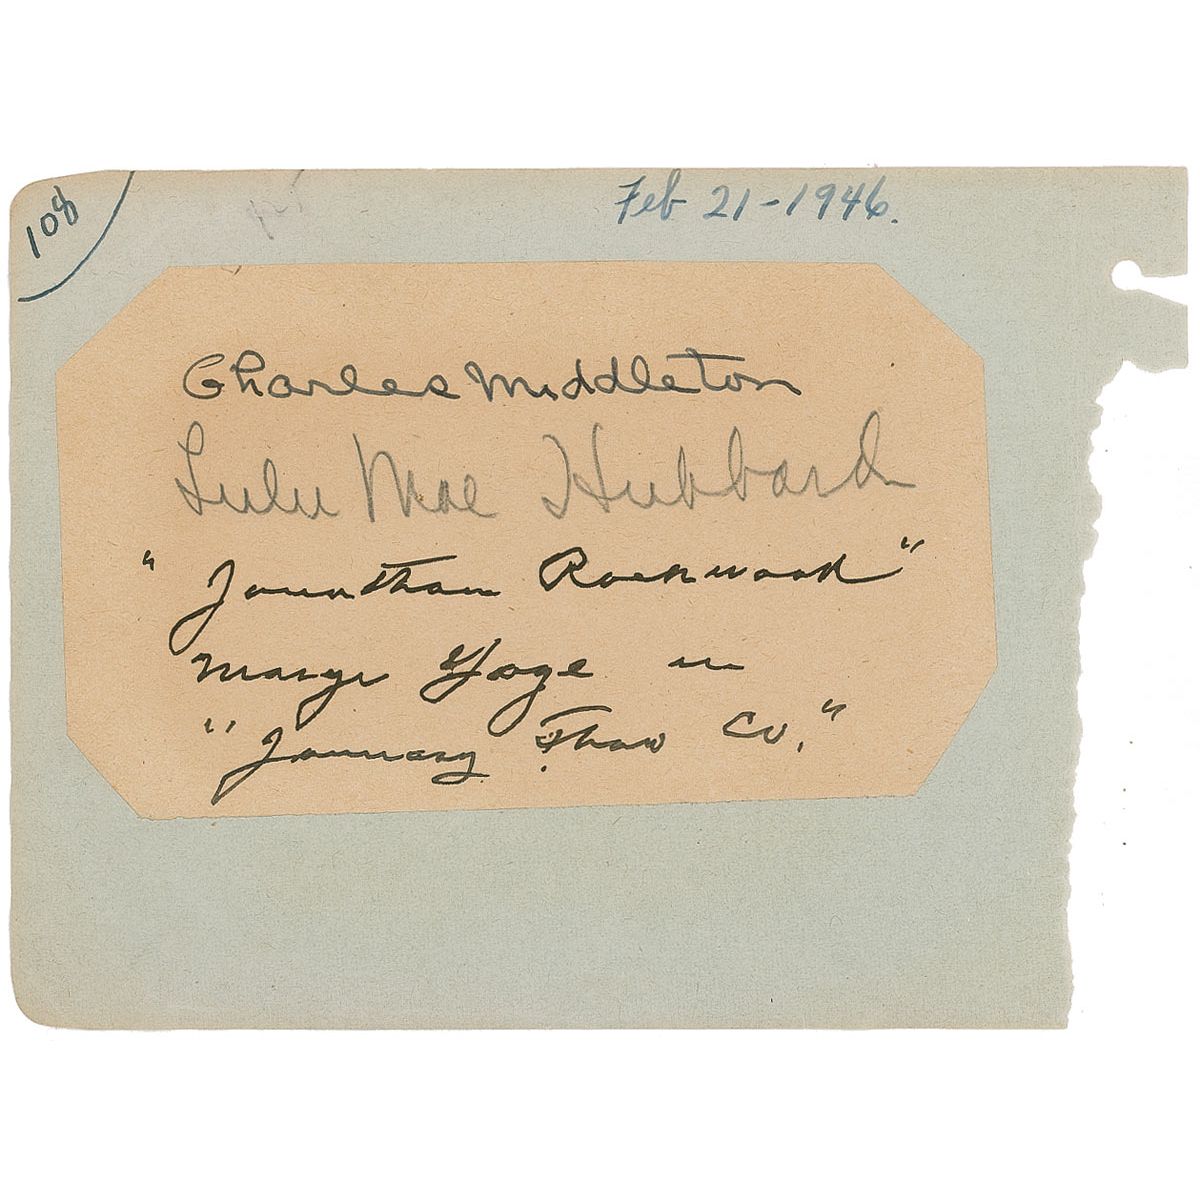 108
Feb 21-1946.
Charles Middleton
Lulu Mae Hubbard
"Jonathan Rockwood"
in
"January Thaw Co."